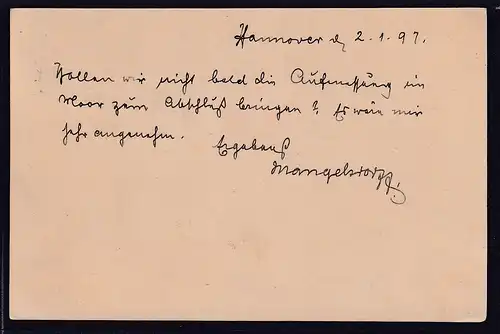 Hannover d. 2.1.97.
Wollen wir nicht bald die Aufmessung im
Moor zum Abschluß bringen? Es wäre mir
sehr angenehm.
Ergebenst
Mangelsdorff.